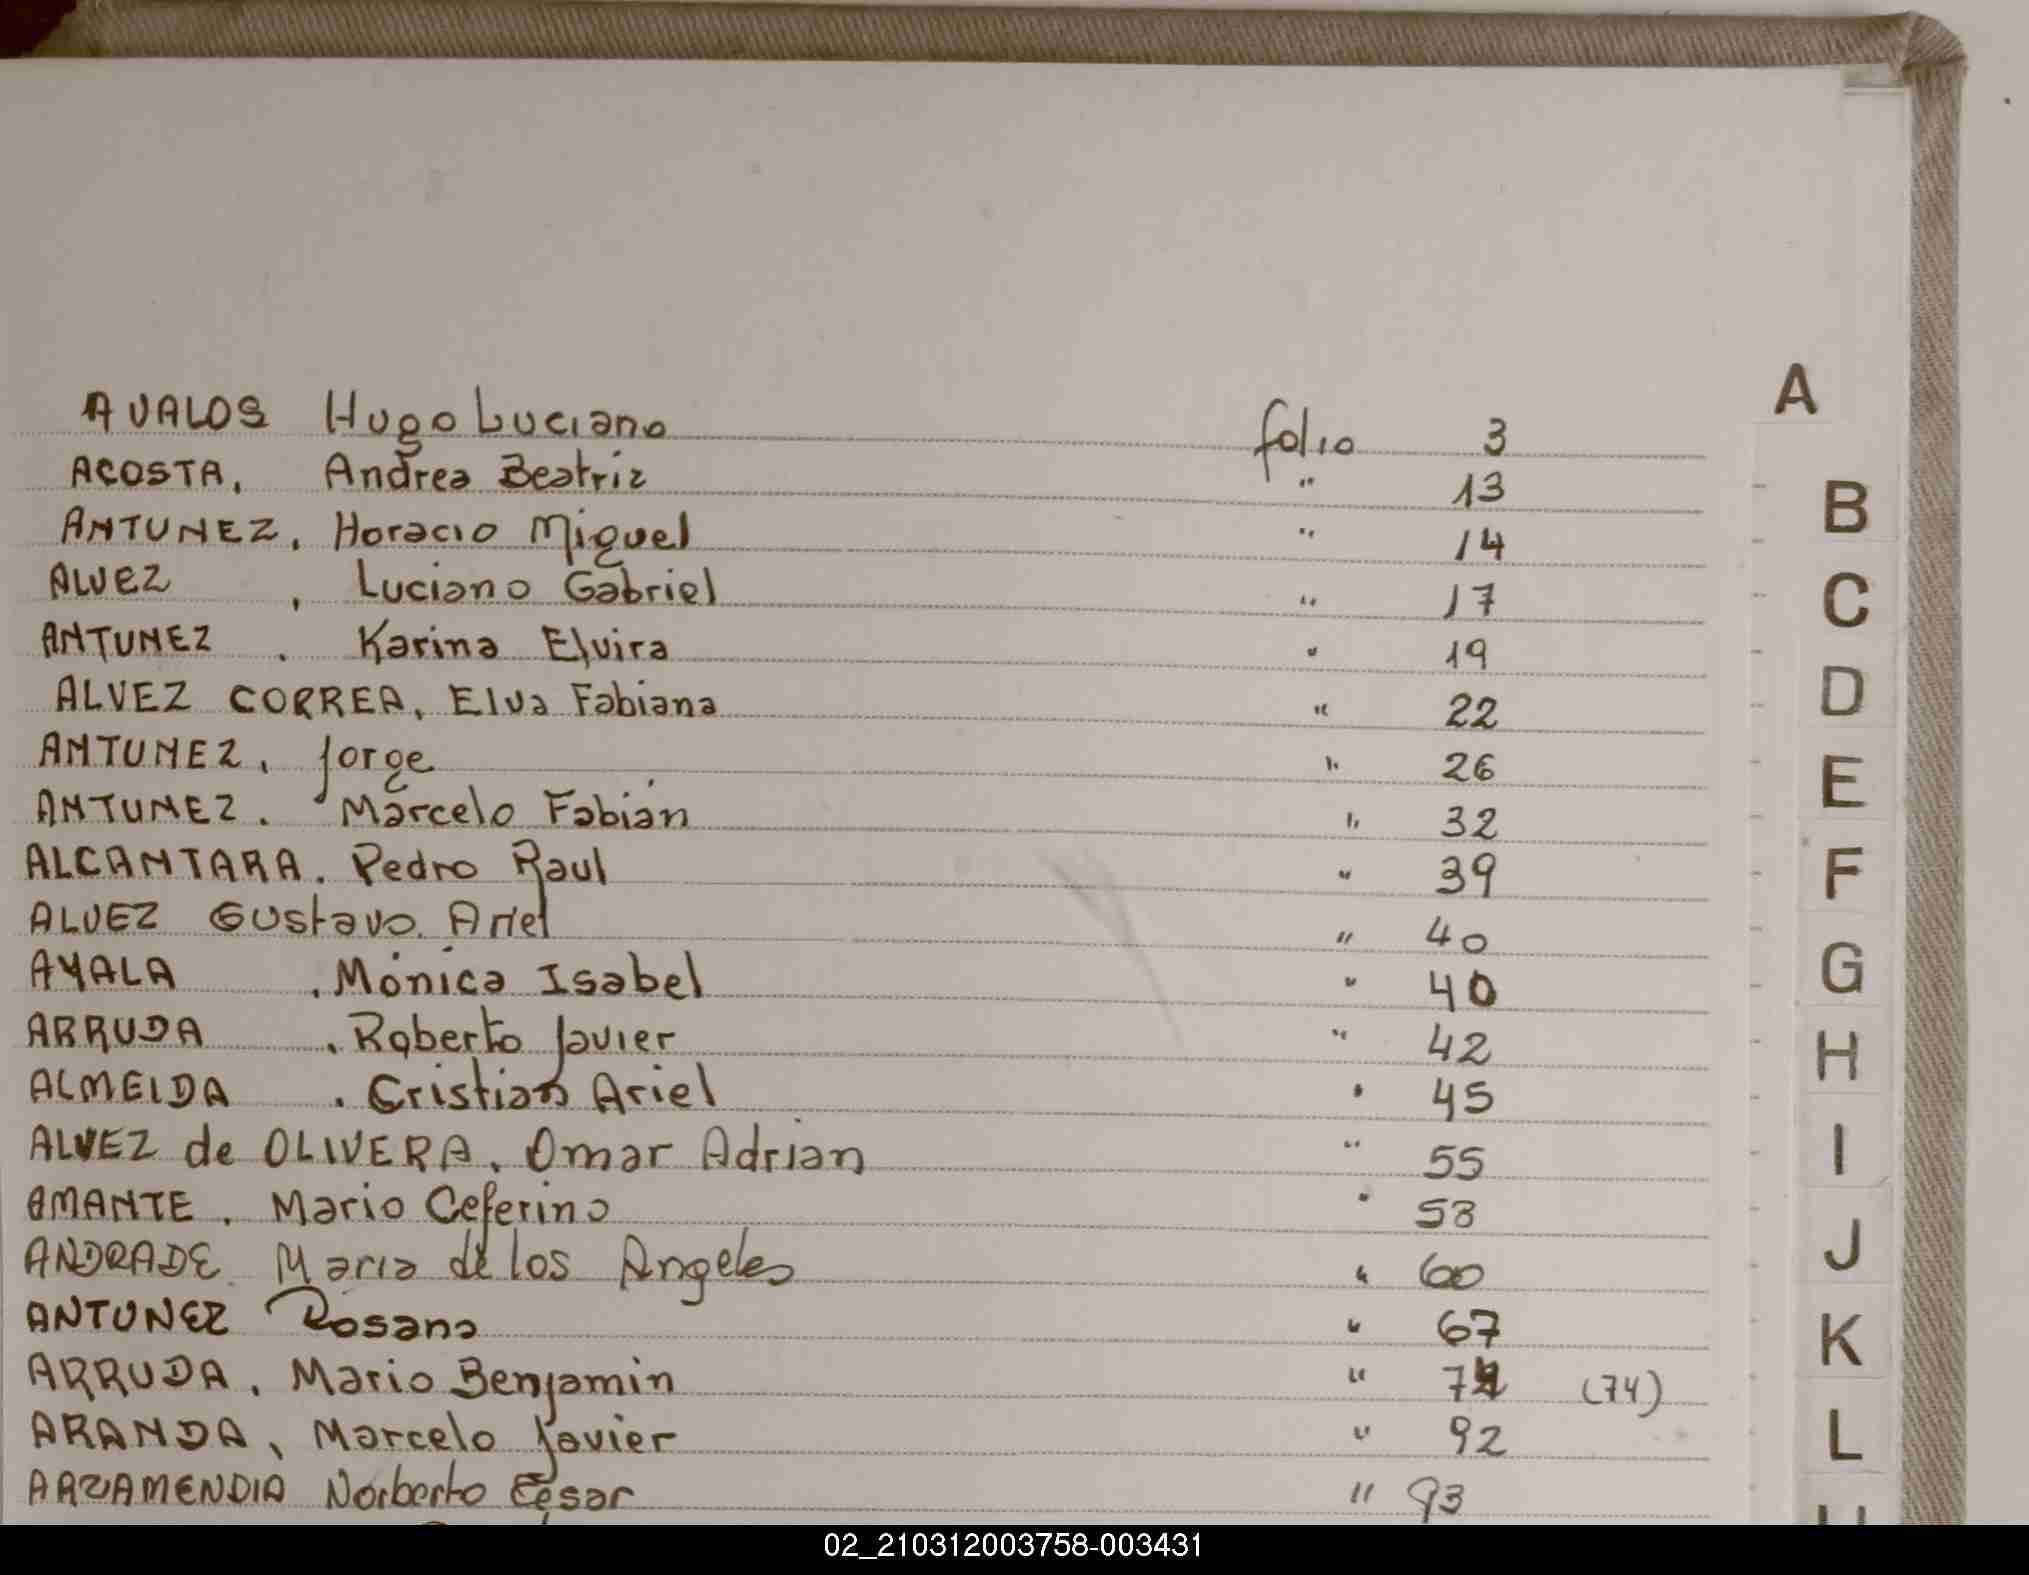 A
AVALOS Hugo Luciano folio 3
ACOSTA, Andrea Beatriz " 13
ANTUNEZ, Horacio Miguel " 14
ALVEZ , Luciano Gabriel " 17
ANTUNEZ . Karina Elvira " 19
ALVEZ CORREA, Elva Fabiana " 22
ANTUNEZ, Jorge " 26
ANTUNEZ. Marcelo Fabián " 32
ALCANTARA. Pedro Raul " 39
ALVEZ Gustavo. Ariel " 40
AYALA . Mónica Isabel " 40
ARRUDA . Roberto Javier " 42
ALMEIDA . Cristian Ariel " 45
ALVEZ de OLIVERA, Omar Adrian " 55
AMANTE, Mario Ceferino " 58
ANDRADE Maria de los Angeles " 60
ANTUNEZ Rosana " 67
ARRUDA, Mario Benjamin " 74 (74)
ARANDA, Marcelo Javier " 92
ARZAMENDIA Norberto César " 93
B
C
D
E
F
G
H
I
J
K
L
02_210312003758-003431